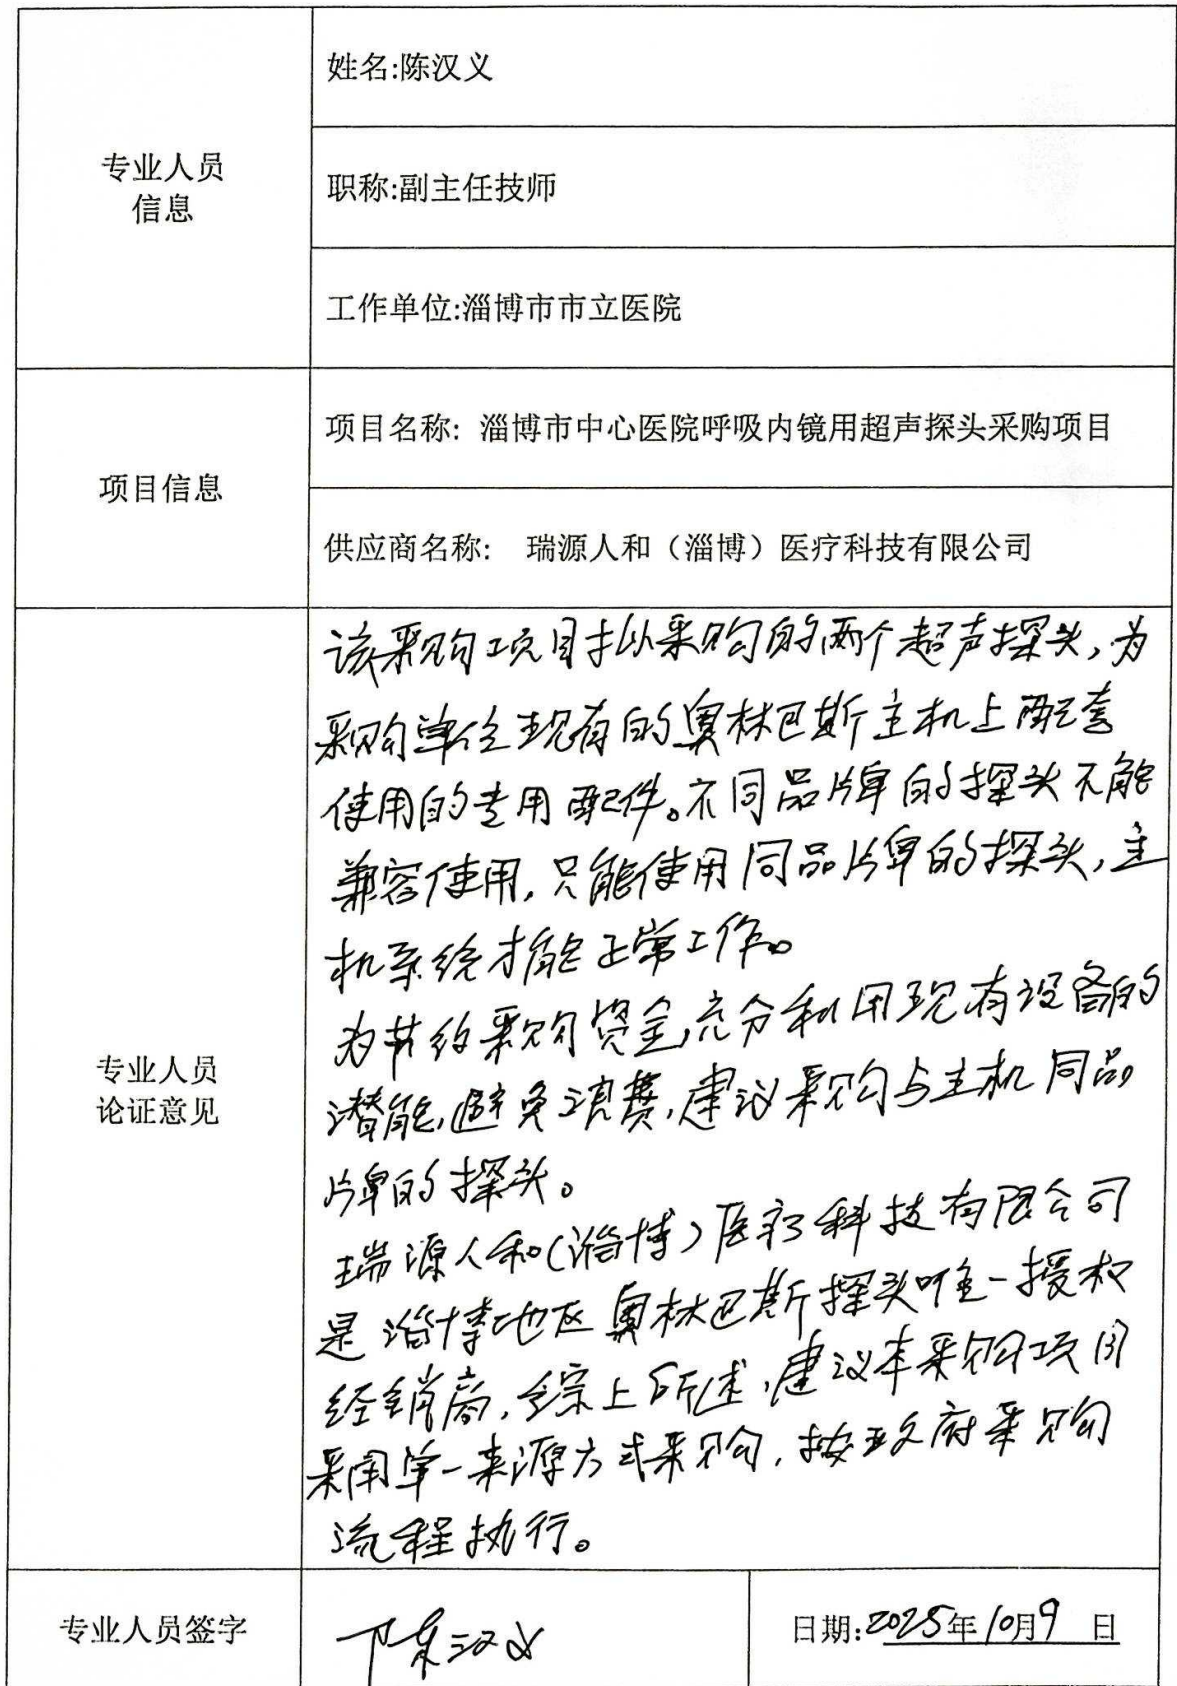 姓名:陈汉义
专业人员
信息
职称:副主任技师
工作单位:淄博市市立医院
项目信息
项目名称: 淄博市中心医院呼吸内镜用超声探头采购项目
供应商名称: 瑞源人和（淄博）医疗科技有限公司
专业人员
论证意见
该采购项目拟采购的两个超声探头,为
采购单位现有的奥林巴斯主机上配套
使用的专用配件。不同品牌的探头不能
兼容使用,只能使用同品牌的探头,主
机系统才能正常工作。
为节约采购资金,充分利用现有设备的
潜能,避免浪费,建议采购与主机同品
牌的探头。
瑞源人和(淄博)医疗科技有限公司
是淄博地区奥林巴斯探头唯一授权
经销商,综上所述,建议本采购项目
采用单一来源方式采购,按政府采购
流程执行。
专业人员签字
陈汉义
日期:2025年10月9日